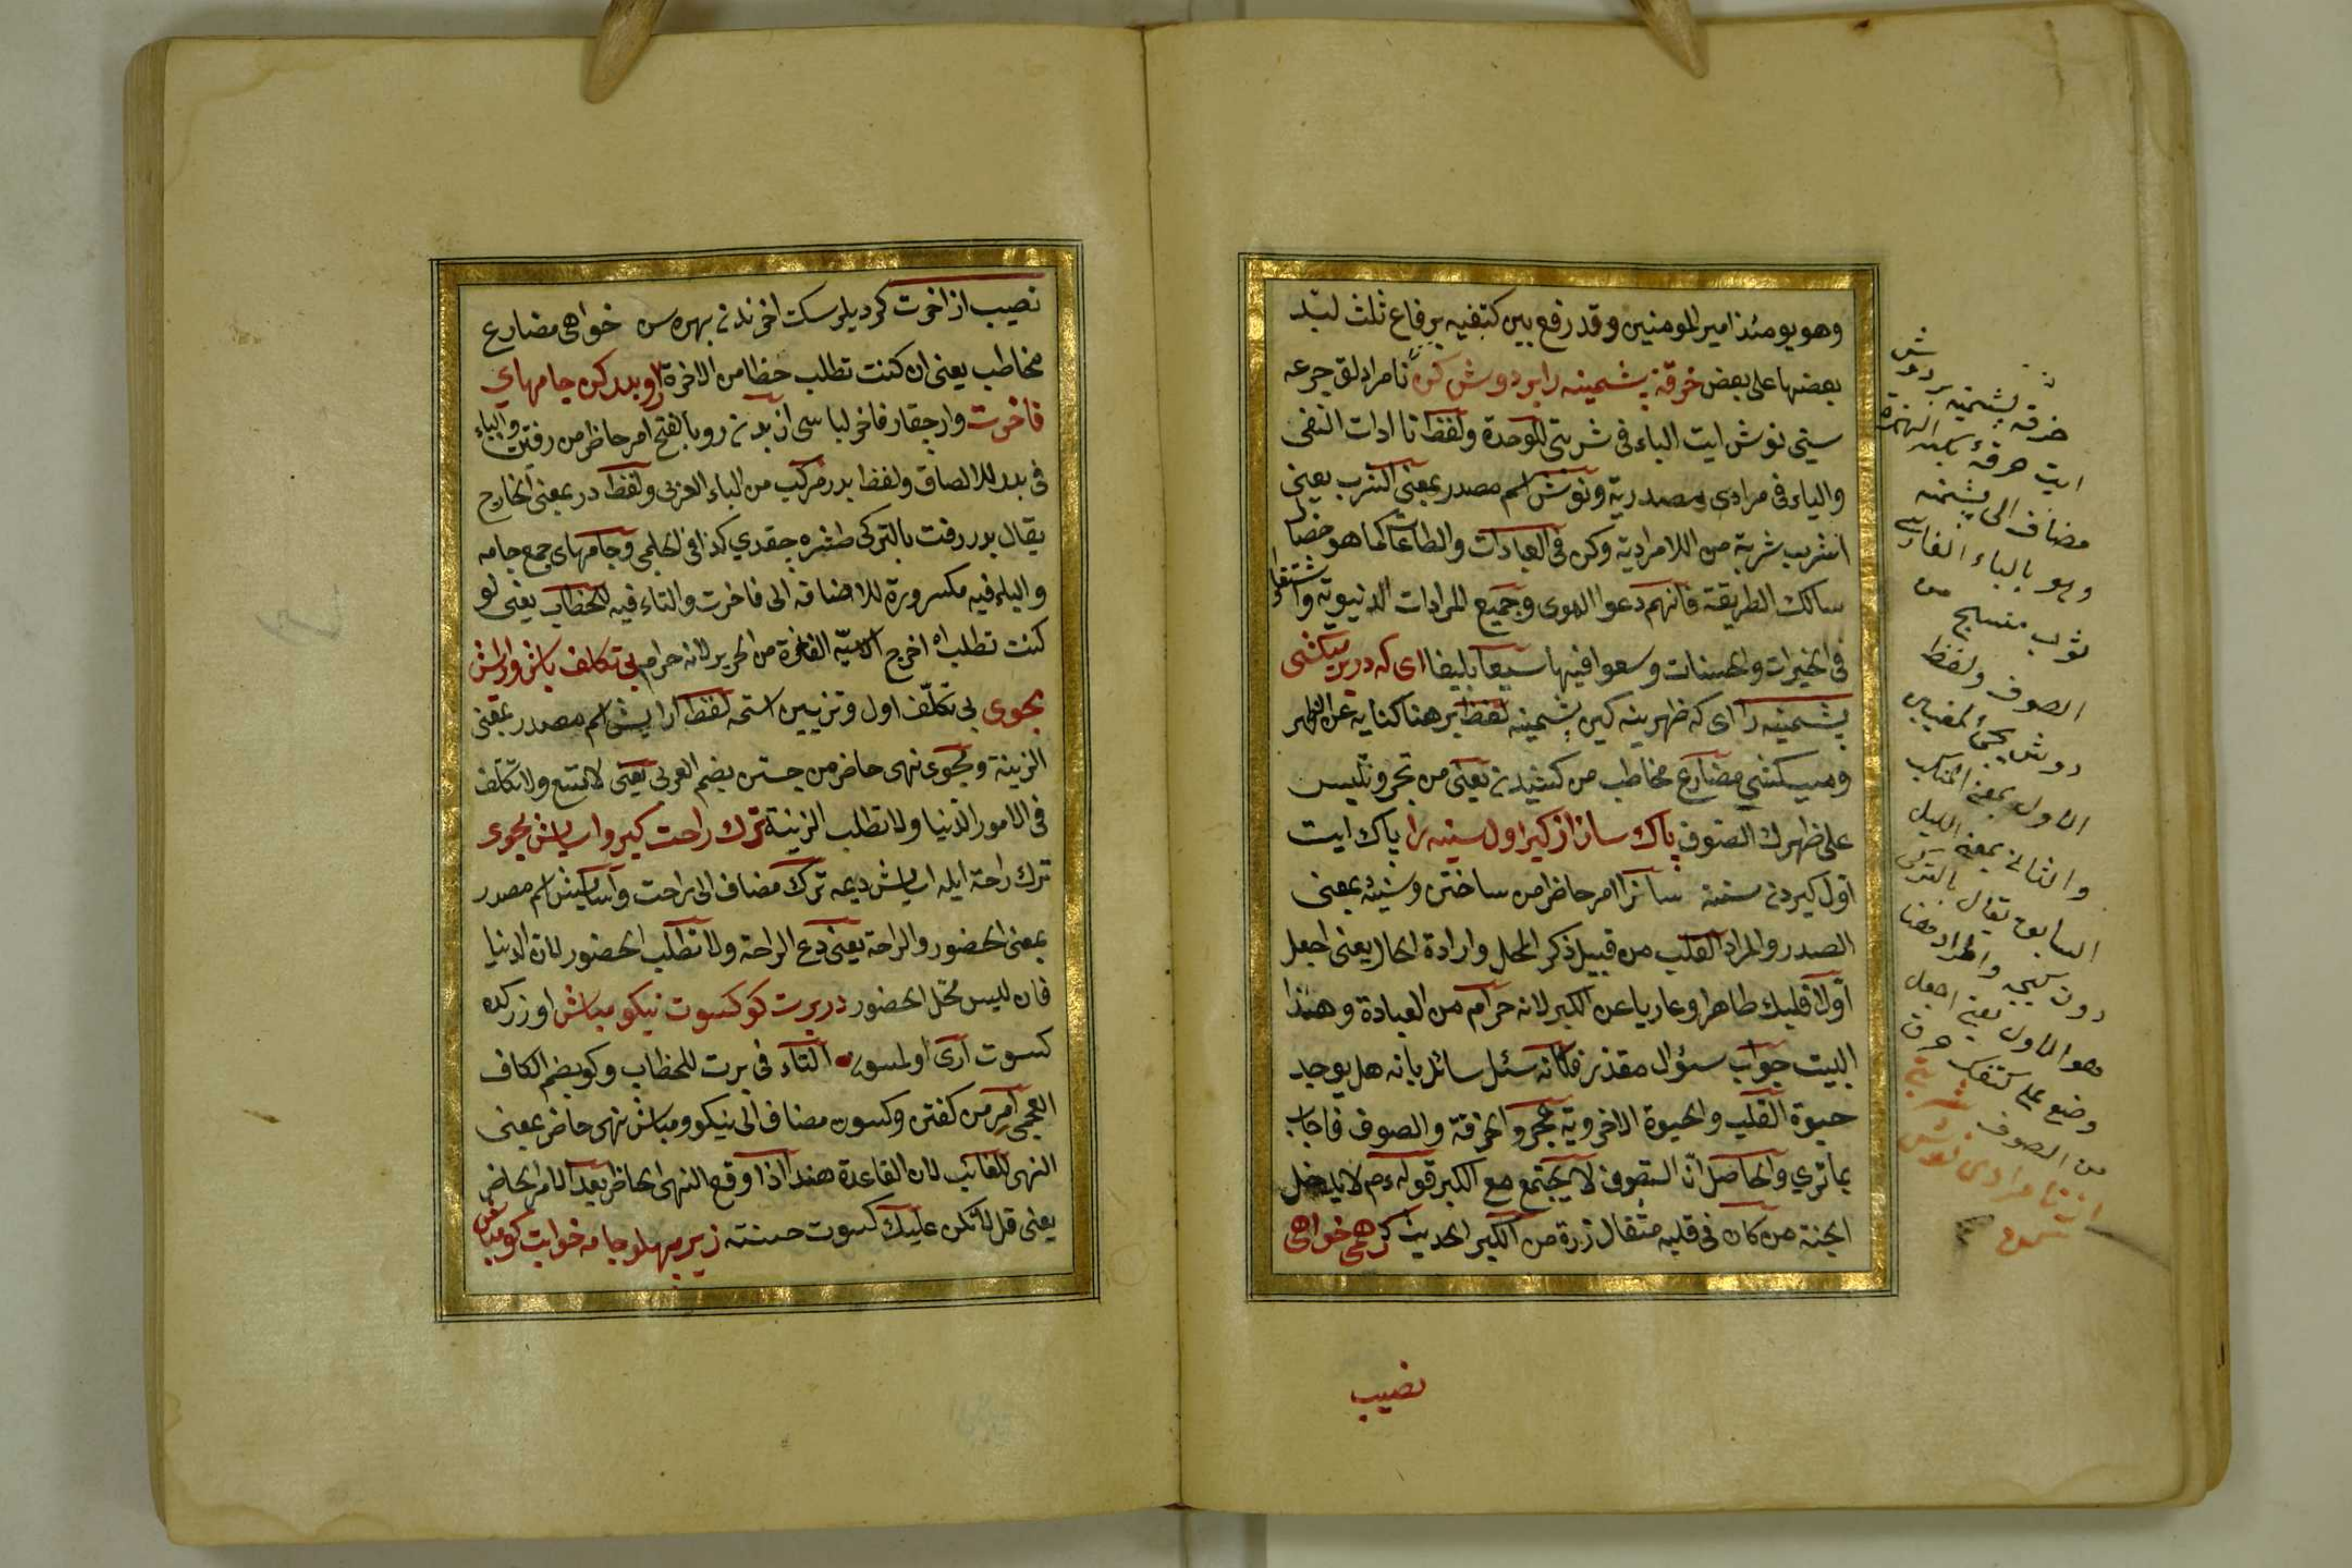 وهو يومئذ امير المومنين وقد رفع بين كتفيه برقاع ثلث لبّد
بعضها على بعض خرقۀ پشمينه را بر دوش كن نامرادلق جرعه
سنى نوش ايت الباء فى شربتى للوحدة ولفظ نا ادات النفى
والياء فى مرادى مصدرية ونوش اسم مصدر بمعنى الشرب يعنى
اشرب شربة من اللامرادية وكن فى العبادات والطاعات كما هو
سالك الطريقة فانهم دعوا الهوى وجميع المرادات الدنيوية واشتغلوا
فى الخيرات والحسنات وسعوا فيها سعيا بليغا اى كه در بر ميكشى
پشمينه را اى كه ظهرينه كين پشمينه لفظ بر هنا كناية عن الظهر
وميكشى مضارع مخاطب من كشيدن يعنى من تجر وتلبس
على ظهرك الصوف پاك ساز از كبر اول سينه را پاك ايت
اول كبردن سنه ساز امر حاظر من ساختن وسينه بمعنى
الصدر والمراد القلب من قبيل ذكر المحل وارادة الحال يعنى اجعل
اوّلا قلبك طاهرا وعاريا عن الكبر لانه حرام من العبادة وهذا
البيت جواب سؤال مقدر فكانه سئل سائل بانه هل يوجد
حيوة القلب والحيوة الاخروية بمجرد الخرقة والصوف فاجاب
بما ترى والحاصل انّ التصوف لا يجتمع مع الكبر قوله عم لا يدخل
الجنة من كان فى قلبه مثقال ذرة من الكبر الحديث كر همى خواهى
نصيب
خرقه پشمينه بر دوش
ايت خرقۀ بكسر الهمزة
مضاف الى پشمينه
وهو بالباء الفارسى
ثوب منسج من
الصوف ولفظ
دوش يجئ لمعنيين
الاول بمعنى المنكب
والثانى بمعنى الليل
السابق يقال بالتركى
دون كيجه والمراد هنا
هو الاول يعنى اجعل
وضع على كتفك خرقة
من الصوف
نامرادى نوش
نصيب از اخرت كر ديلرسك اخرندن بهره سن خواهى مضارع
مخاطب يعنى ان كنت تطلب حظا من الاخرة رو بدر كن جامهاى
فاخرت وار چقار فاخر لباسى ان بدن رو بالفتح امر حاظر من رفتن والباء
فى بدر للالصاق ولفظ بدر مركب من الباء العربى ولفظ در بمعنى الخارج
يقال بدر رفت بالتركى طشره چقدى كذا فى الحلمى وجامهاى جمع جامه
والياء فيه مكسورة للاضافة الى فاخرت والتاء فيه للخطاب يعنى لو
كنت تطلب اخرج الفاخرة من الحرير لانه حرام بى تكلف باش وارايش
مجوى بى تكلّف اول وتزيين استمه لفظ ارايش اسم مصدر بمعنى
الزينة ومجوى نهى حاضر من جستن بضم العربى يعنى لا تتبع ولا تكلف
فى الامور الدنيا ولا تطلب الزينة ترك راحت كير واسايش مجوى
ترك راحة ايله اسايش ديمه ترك مضاف الى راحت واسايش اسم مصدر
بمعنى الحضور والراحة يعنى دع الراحة ولا تطلب الحضور لان الدنيا
فان ليس محل الحضور در برت كو كسوت نيكو مباش اوزركده
كسوت ارى اولمسون التاء فى برت للخطاب وكو بضم الكاف
العجمى امر من كفتن وكسوت مضاف الى نيكو ومباش نهى حاضر بمعنى
النهى للغائب لان القاعدة هنا اذا وقع النهى الحاظر بعد الامر الحاضر
يعنى قل لا تكن عليك كسوت حسنته زير پهلو جامه خوابت كو مباش